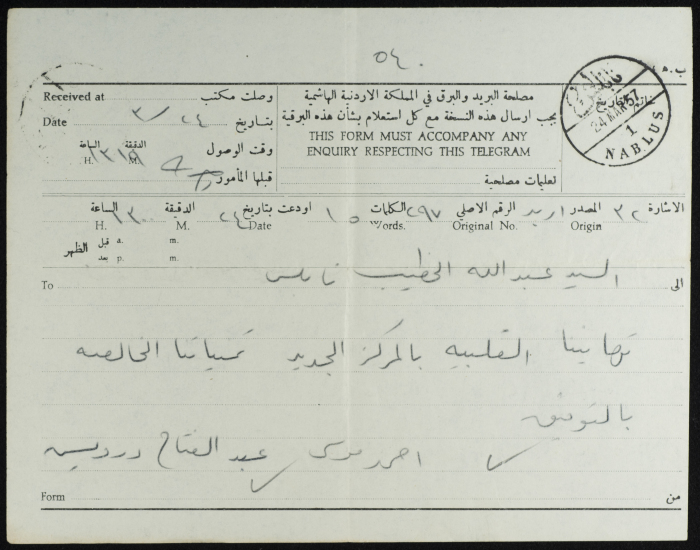 ٥٤٠
ب. ه
Received at وصلت مكتب
مصلحة البريد والبرق في المملكة الاردنية الهاشمية
خاتم التاريخ
Date ٣/٢٤ بتاريخ
يجب ارسال هذه النسخة مع كل استعلام بشأن هذه البرقية
24 MAR 57
1
NABLUS
الساعة الدقيقة وقت الوصول
H. ١٣١٥ M.
THIS FORM MUST ACCOMPANY ANY
ENQUIRY RESPECTING THIS TELEGRAM
قبلها المأمور
تعليمات مصلحية
الاشارة ٣٢ المصدر اربد الرقم الاصلي ٢٩٧ الكلمات ١٥ اودعت بتاريخ ٢٤ الدقيقة ١٣٠٠ الساعة
H. M. Date Words. Original No. Origin
الظهر قبل a. m.
بعد p. m.
To السيد عبدالله الخطيب نابلس الى
تهانينا القلبيه بالمركز الجديد تمنياتنا الخالصه
بالتوفيق
احمد موسى عبد الفتاح درويش
Form من